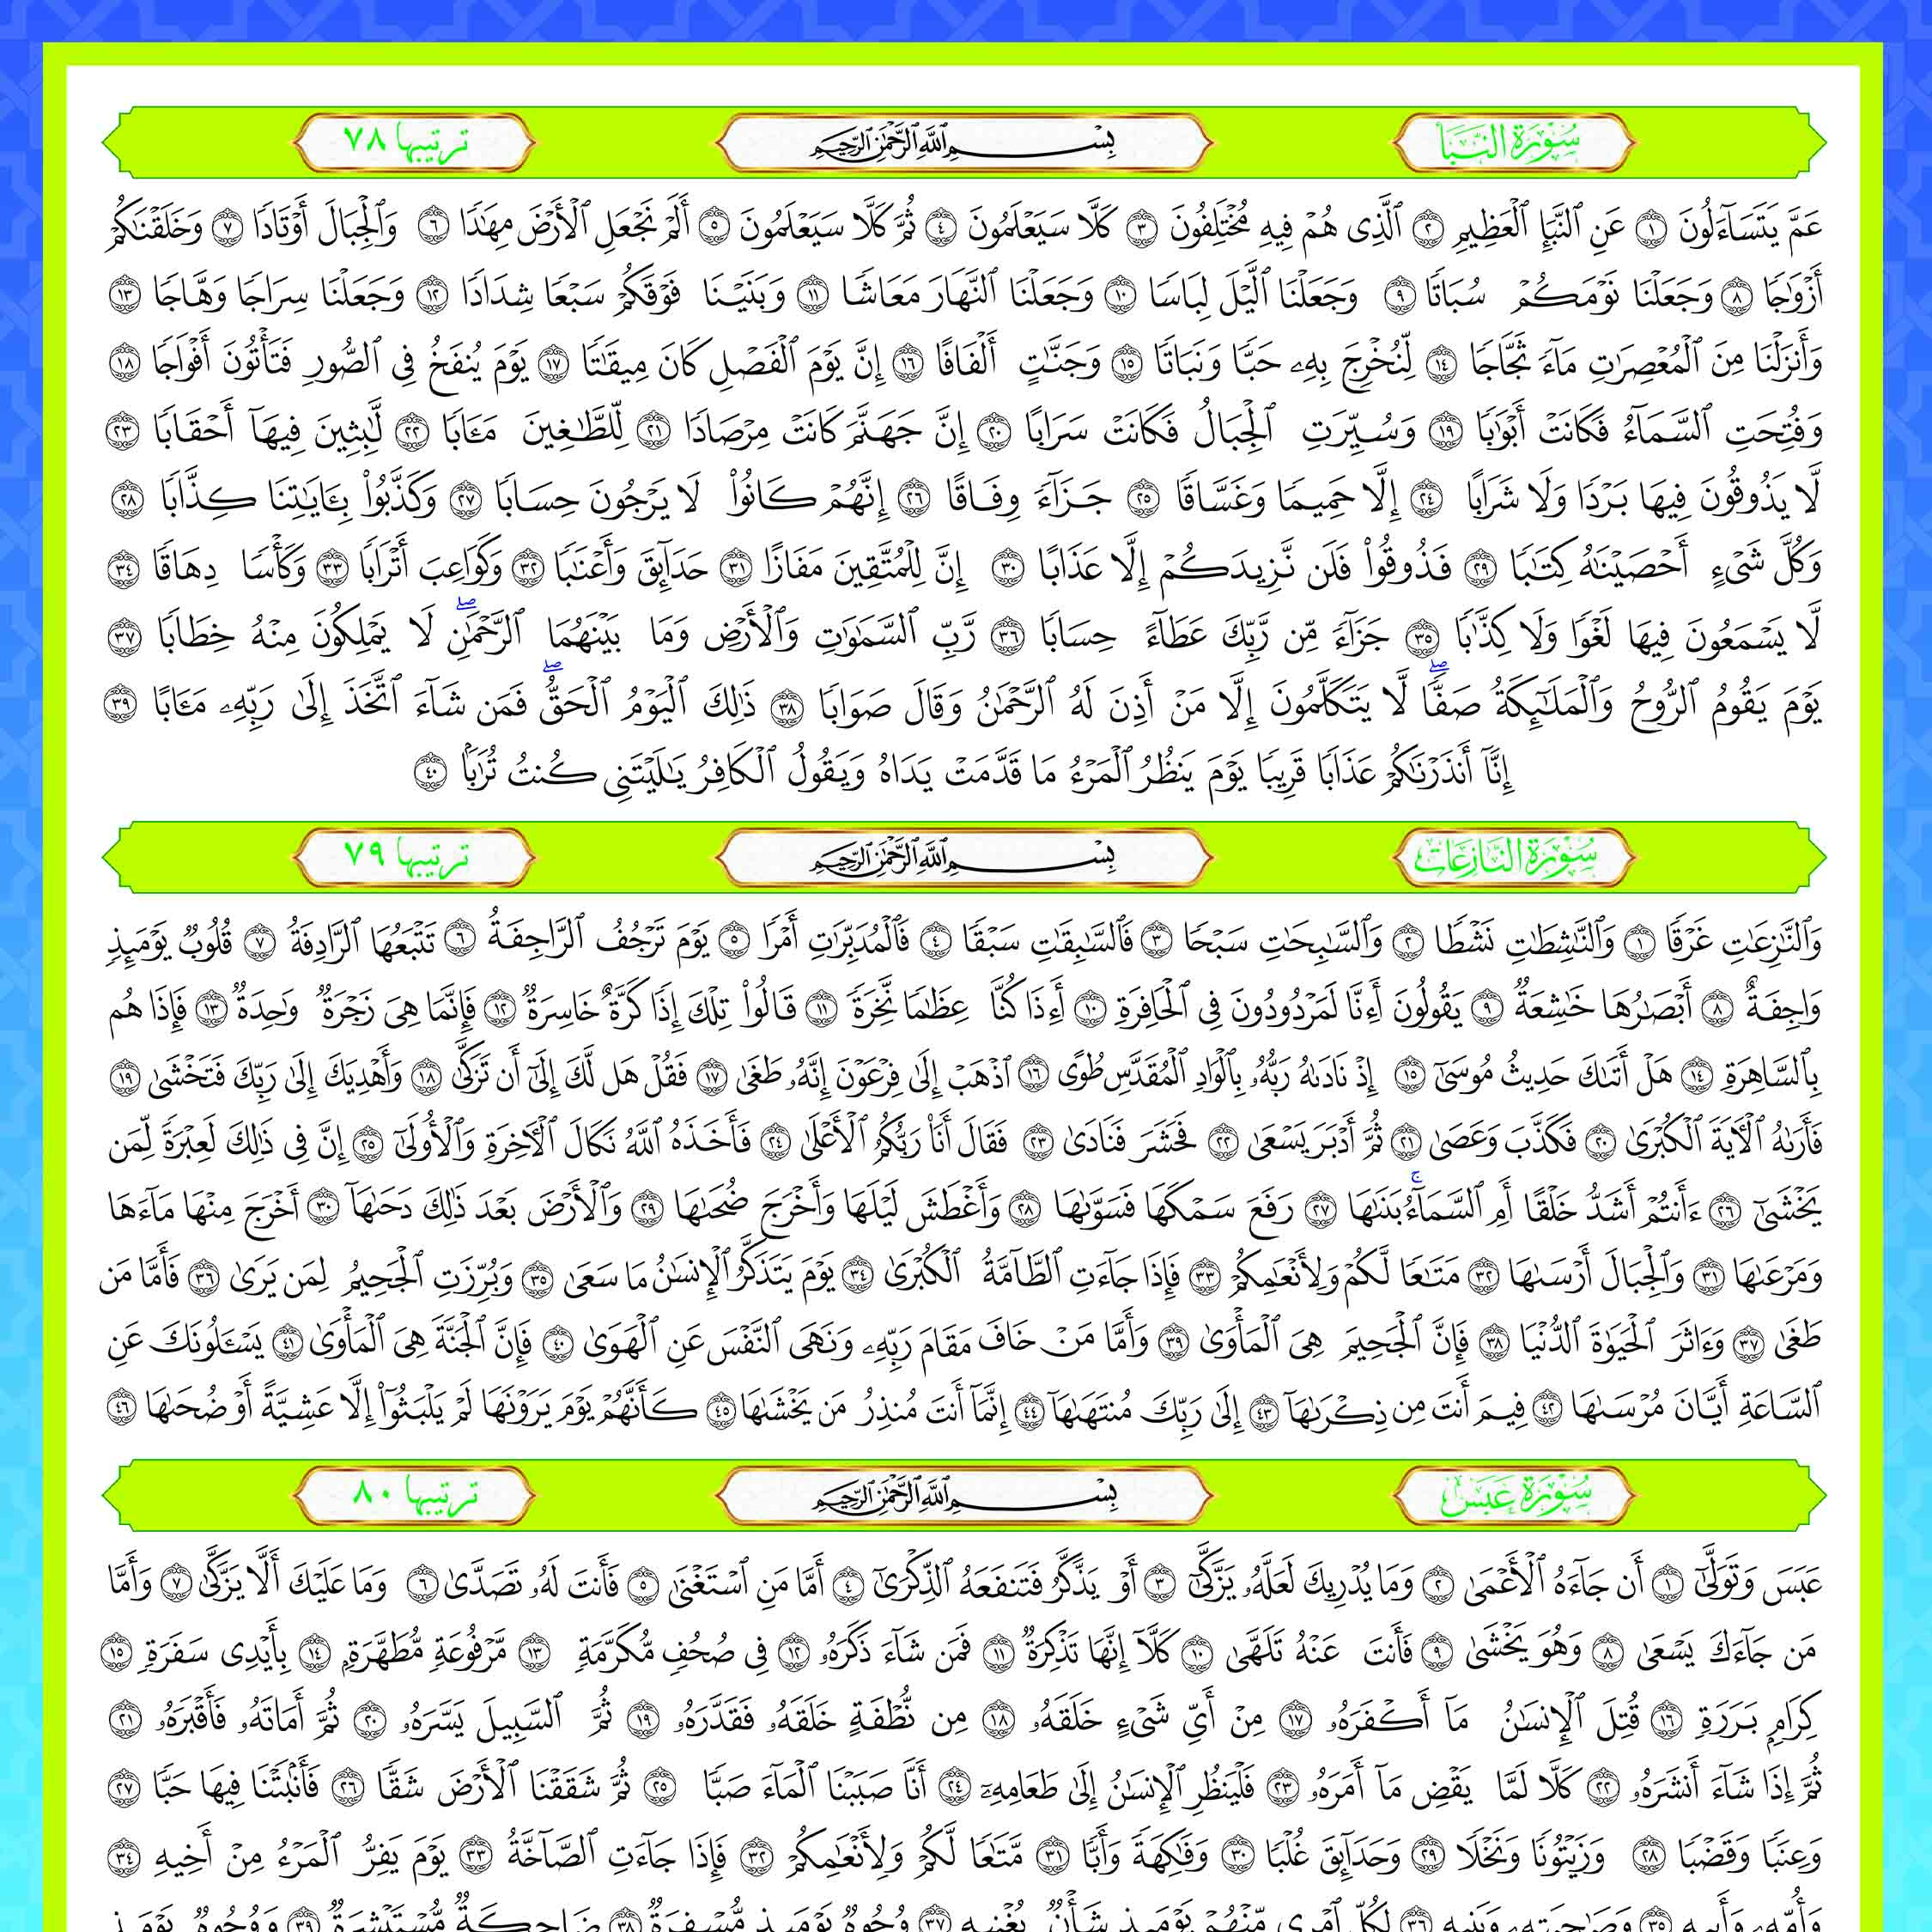 سُورَةُ النَّبَأ بِسْمِ ٱللَّهِ ٱلرَّحْمَٰنِ ٱلرَّحِيمِ ترتيبها ٧٨
عَمَّ يَتَسَآءَلُونَ ١ عَنِ ٱلنَّبَإِ ٱلْعَظِيمِ ٢ ٱلَّذِى هُمْ فِيهِ مُخْتَلِفُونَ ٣ كَلَّا سَيَعْلَمُونَ ٤ ثُمَّ كَلَّا سَيَعْلَمُونَ ٥ أَلَمْ نَجْعَلِ ٱلْأَرْضَ مِهَٰدًا ٦ وَٱلْجِبَالَ أَوْتَادًا ٧ وَخَلَقْنَٰكُمْ
أَزْوَٰجًا ٨ وَجَعَلْنَا نَوْمَكُمْ سُبَاتًا ٩ وَجَعَلْنَا ٱلَّيْلَ لِبَاسًا ١٠ وَجَعَلْنَا ٱلنَّهَارَ مَعَاشًا ١١ وَبَنَيْنَا فَوْقَكُمْ سَبْعًا شِدَادًا ١٢ وَجَعَلْنَا سِرَاجًا وَهَّاجًا ١٣
وَأَنزَلْنَا مِنَ ٱلْمُعْصِرَٰتِ مَآءً ثَجَّاجًا ١٤ لِّنُخْرِجَ بِهِۦ حَبًّا وَنَبَاتًا ١٥ وَجَنَّٰتٍ أَلْفَافًا ١٦ إِنَّ يَوْمَ ٱلْفَصْلِ كَانَ مِيقَٰتًا ١٧ يَوْمَ يُنفَخُ فِى ٱلصُّورِ فَتَأْتُونَ أَفْوَاجًا ١٨
وَفُتِحَتِ ٱلسَّمَآءُ فَكَانَتْ أَبْوَٰبًا ١٩ وَسُيِّرَتِ ٱلْجِبَالُ فَكَانَتْ سَرَابًا ٢٠ إِنَّ جَهَنَّمَ كَانَتْ مِرْصَادًا ٢١ لِّلطَّٰغِينَ مَـَٔابًا ٢٢ لَّٰبِثِينَ فِيهَآ أَحْقَابًا ٢٣
لَّا يَذُوقُونَ فِيهَا بَرْدًا وَلَا شَرَابًا ٢٤ إِلَّا حَمِيمًا وَغَسَّاقًا ٢٥ جَزَآءً وِفَاقًا ٢٦ إِنَّهُمْ كَانُوا۟ لَا يَرْجُونَ حِسَابًا ٢٧ وَكَذَّبُوا۟ بِـَٔايَٰتِنَا كِذَّابًا ٢٨
وَكُلَّ شَىْءٍ أَحْصَيْنَٰهُ كِتَٰبًا ٢٩ فَذُوقُوا۟ فَلَن نَّزِيدَكُمْ إِلَّا عَذَابًا ٣٠ إِنَّ لِلْمُتَّقِينَ مَفَازًا ٣١ حَدَآئِقَ وَأَعْنَٰبًا ٣٢ وَكَوَاعِبَ أَتْرَابًا ٣٣ وَكَأْسًا دِهَاقًا ٣٤
لَّا يَسْمَعُونَ فِيهَا لَغْوًا وَلَا كِذَّٰبًا ٣٥ جَزَآءً مِّن رَّبِّكَ عَطَآءً حِسَابًا ٣٦ رَّبِّ ٱلسَّمَٰوَٰتِ وَٱلْأَرْضِ وَمَا بَيْنَهُمَا ٱلرَّحْمَٰنِ ۖ لَا يَمْلِكُونَ مِنْهُ خِطَابًا ٣٧
يَوْمَ يَقُومُ ٱلرُّوحُ وَٱلْمَلَٰٓئِكَةُ صَفًّا ۖ لَّا يَتَكَلَّمُونَ إِلَّا مَنْ أَذِنَ لَهُ ٱلرَّحْمَٰنُ وَقَالَ صَوَابًا ٣٨ ذَٰلِكَ ٱلْيَوْمُ ٱلْحَقُّ ۖ فَمَن شَآءَ ٱتَّخَذَ إِلَىٰ رَبِّهِۦ مَـَٔابًا ٣٩
إِنَّآ أَنذَرْنَٰكُمْ عَذَابًا قَرِيبًا يَوْمَ يَنظُرُ ٱلْمَرْءُ مَا قَدَّمَتْ يَدَاهُ وَيَقُولُ ٱلْكَافِرُ يَٰلَيْتَنِى كُنتُ تُرَٰبًۢا ٤٠
سُورَةُ النَّازِعَات بِسْمِ ٱللَّهِ ٱلرَّحْمَٰنِ ٱلرَّحِيمِ ترتيبها ٧٩
وَٱلنَّٰزِعَٰتِ غَرْقًا ١ وَٱلنَّٰشِطَٰتِ نَشْطًا ٢ وَٱلسَّٰبِحَٰتِ سَبْحًا ٣ فَٱلسَّٰبِقَٰتِ سَبْقًا ٤ فَٱلْمُدَبِّرَٰتِ أَمْرًا ٥ يَوْمَ تَرْجُفُ ٱلرَّاجِفَةُ ٦ تَتْبَعُهَا ٱلرَّادِفَةُ ٧ قُلُوبٌ يَوْمَئِذٍ
وَاجِفَةٌ ٨ أَبْصَٰرُهَا خَٰشِعَةٌ ٩ يَقُولُونَ أَءِنَّا لَمَرْدُودُونَ فِى ٱلْحَافِرَةِ ١٠ أَءِذَا كُنَّا عِظَٰمًا نَّخِرَةً ١١ قَالُوا۟ تِلْكَ إِذًا كَرَّةٌ خَاسِرَةٌ ١٢ فَإِنَّمَا هِىَ زَجْرَةٌ وَٰحِدَةٌ ١٣ فَإِذَا هُم
بِٱلسَّاهِرَةِ ١٤ هَلْ أَتَىٰكَ حَدِيثُ مُوسَىٰٓ ١٥ إِذْ نَادَىٰهُ رَبُّهُۥ بِٱلْوَادِ ٱلْمُقَدَّسِ طُوًى ١٦ ٱذْهَبْ إِلَىٰ فِرْعَوْنَ إِنَّهُۥ طَغَىٰ ١٧ فَقُلْ هَل لَّكَ إِلَىٰٓ أَن تَزَكَّىٰ ١٨ وَأَهْدِيَكَ إِلَىٰ رَبِّكَ فَتَخْشَىٰ ١٩
فَأَرَىٰهُ ٱلْـَٔايَةَ ٱلْكُبْرَىٰ ٢٠ فَكَذَّبَ وَعَصَىٰ ٢١ ثُمَّ أَدْبَرَ يَسْعَىٰ ٢٢ فَحَشَرَ فَنَادَىٰ ٢٣ فَقَالَ أَنَا۠ رَبُّكُمُ ٱلْأَعْلَىٰ ٢٤ فَأَخَذَهُ ٱللَّهُ نَكَالَ ٱلْـَٔاخِرَةِ وَٱلْأُولَىٰٓ ٢٥ إِنَّ فِى ذَٰلِكَ لَعِبْرَةً لِّمَن
يَخْشَىٰٓ ٢٦ ءَأَنتُمْ أَشَدُّ خَلْقًا أَمِ ٱلسَّمَآءُ ۚ بَنَىٰهَا ٢٧ رَفَعَ سَمْكَهَا فَسَوَّىٰهَا ٢٨ وَأَغْطَشَ لَيْلَهَا وَأَخْرَجَ ضُحَىٰهَا ٢٩ وَٱلْأَرْضَ بَعْدَ ذَٰلِكَ دَحَىٰهَآ ٣٠ أَخْرَجَ مِنْهَا مَآءَهَا
وَمَرْعَىٰهَا ٣١ وَٱلْجِبَالَ أَرْسَىٰهَا ٣٢ مَتَٰعًا لَّكُمْ وَلِأَنْعَٰمِكُمْ ٣٣ فَإِذَا جَآءَتِ ٱلطَّآمَّةُ ٱلْكُبْرَىٰ ٣٤ يَوْمَ يَتَذَكَّرُ ٱلْإِنسَٰنُ مَا سَعَىٰ ٣٥ وَبُرِّزَتِ ٱلْجَحِيمُ لِمَن يَرَىٰ ٣٦ فَأَمَّا مَن
طَغَىٰ ٣٧ وَءَاثَرَ ٱلْحَيَوٰةَ ٱلدُّنْيَا ٣٨ فَإِنَّ ٱلْجَحِيمَ هِىَ ٱلْمَأْوَىٰ ٣٩ وَأَمَّا مَنْ خَافَ مَقَامَ رَبِّهِۦ وَنَهَى ٱلنَّفْسَ عَنِ ٱلْهَوَىٰ ٤٠ فَإِنَّ ٱلْجَنَّةَ هِىَ ٱلْمَأْوَىٰ ٤١ يَسْـَٔلُونَكَ عَنِ
ٱلسَّاعَةِ أَيَّانَ مُرْسَىٰهَا ٤٢ فِيمَ أَنتَ مِن ذِكْرَىٰهَآ ٤٣ إِلَىٰ رَبِّكَ مُنتَهَىٰهَآ ٤٤ إِنَّمَآ أَنتَ مُنذِرُ مَن يَخْشَىٰهَا ٤٥ كَأَنَّهُمْ يَوْمَ يَرَوْنَهَا لَمْ يَلْبَثُوٓا۟ إِلَّا عَشِيَّةً أَوْ ضُحَىٰهَا ٤٦
سُورَةُ عَبَسَ بِسْمِ ٱللَّهِ ٱلرَّحْمَٰنِ ٱلرَّحِيمِ ترتيبها ٨٠
عَبَسَ وَتَوَلَّىٰٓ ١ أَن جَآءَهُ ٱلْأَعْمَىٰ ٢ وَمَا يُدْرِيكَ لَعَلَّهُۥ يَزَّكَّىٰٓ ٣ أَوْ يَذَّكَّرُ فَتَنفَعَهُ ٱلذِّكْرَىٰٓ ٤ أَمَّا مَنِ ٱسْتَغْنَىٰ ٥ فَأَنتَ لَهُۥ تَصَدَّىٰ ٦ وَمَا عَلَيْكَ أَلَّا يَزَّكَّىٰ ٧ وَأَمَّا
مَن جَآءَكَ يَسْعَىٰ ٨ وَهُوَ يَخْشَىٰ ٩ فَأَنتَ عَنْهُ تَلَهَّىٰ ١٠ كَلَّآ إِنَّهَا تَذْكِرَةٌ ١١ فَمَن شَآءَ ذَكَرَهُۥ ١٢ فِى صُحُفٍ مُّكَرَّمَةٍ ١٣ مَّرْفُوعَةٍ مُّطَهَّرَةٍۭ ١٤ بِأَيْدِى سَفَرَةٍ ١٥
كِرَامٍۭ بَرَرَةٍ ١٦ قُتِلَ ٱلْإِنسَٰنُ مَآ أَكْفَرَهُۥ ١٧ مِنْ أَىِّ شَىْءٍ خَلَقَهُۥ ١٨ مِن نُّطْفَةٍ خَلَقَهُۥ فَقَدَّرَهُۥ ١٩ ثُمَّ ٱلسَّبِيلَ يَسَّرَهُۥ ٢٠ ثُمَّ أَمَاتَهُۥ فَأَقْبَرَهُۥ ٢١
ثُمَّ إِذَا شَآءَ أَنشَرَهُۥ ٢٢ كَلَّا لَمَّا يَقْضِ مَآ أَمَرَهُۥ ٢٣ فَلْيَنظُرِ ٱلْإِنسَٰنُ إِلَىٰ طَعَامِهِۦٓ ٢٤ أَنَّا صَبَبْنَا ٱلْمَآءَ صَبًّا ٢٥ ثُمَّ شَقَقْنَا ٱلْأَرْضَ شَقًّا ٢٦ فَأَنۢبَتْنَا فِيهَا حَبًّا ٢٧
وَعِنَبًا وَقَضْبًا ٢٨ وَزَيْتُونًا وَنَخْلًا ٢٩ وَحَدَآئِقَ غُلْبًا ٣٠ وَفَٰكِهَةً وَأَبًّا ٣١ مَّتَٰعًا لَّكُمْ وَلِأَنْعَٰمِكُمْ ٣٢ فَإِذَا جَآءَتِ ٱلصَّآخَّةُ ٣٣ يَوْمَ يَفِرُّ ٱلْمَرْءُ مِنْ أَخِيهِ ٣٤
وَأُمِّهِۦ وَأَبِيهِ ٣٥ وَصَٰحِبَتِهِۦ وَبَنِيهِ ٣٦ لِكُلِّ ٱمْرِئٍ مِّنْهُمْ يَوْمَئِذٍ شَأْنٌ يُغْنِيهِ ٣٧ وُجُوهٌ يَوْمَئِذٍ مُّسْفِرَةٌ ٣٨ ضَاحِكَةٌ مُّسْتَبْشِرَةٌ ٣٩ وَوُجُوهٌ يَوْمَئِذٍ